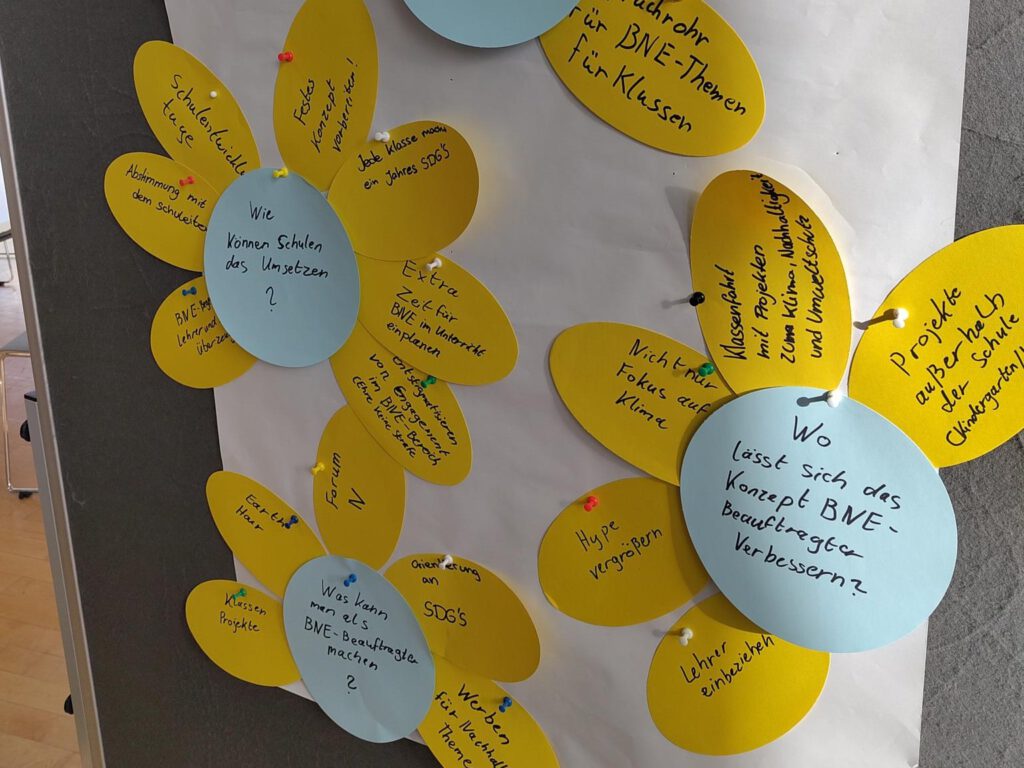 für BNE-Themen
für Klassen
Festes
Konzept
vorbereiten!
Abstimmung mit
dem Schulleiter
Jede Klasse macht
ein Jahres SDG's
Wie
können Schulen
das Umsetzen
?
Extra
Zeit für
BNE im Unterricht
einplanen
Lehrer und
Entstigmatisieren
von Engagement
im BNE-Bereich
Klassenfahrt
mit Projekten
zum Klima, Nachhaltigkeit
und Umweltschutz
Projekte
außerhalb
der Schule
(Kindergarten/
Nicht nur
Fokus auf
Klima
Wo
lässt sich das
Konzept BNE-
Beauftragter
Verbessern?
Hype
vergrößern
Lehrer
einbeziehen
Forum
N
Earth
Hour
Klassen
Projekte
Was kann
man als
BNE-Beauftragter
machen
?
Orientierung
an
SDG'S
Werben
für Nachhal
Theme